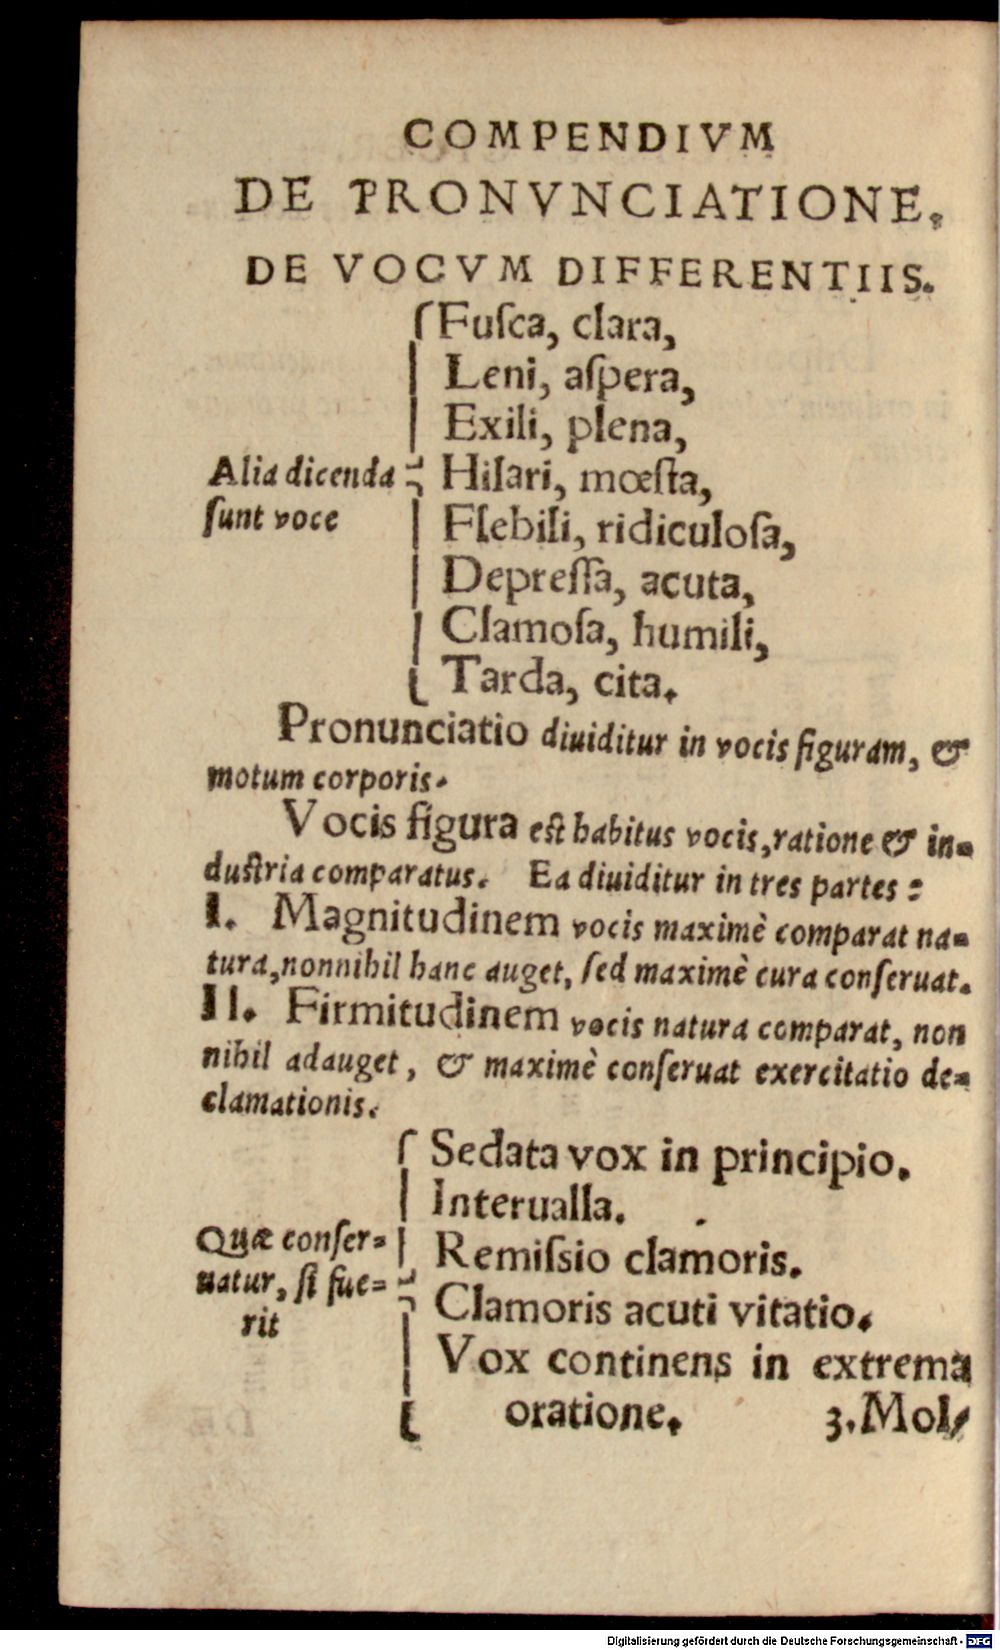 COMPENDIVM
DE PRONVNCIATIONE.
DE VOCVM DIFFERENTIIS.
Fuſca, clara,
Leni, aſpera,
Exili, plena,
Alia dicenda
ſunt voce
Hilari, mœſta,
Flebili, ridiculoſa,
Depreſſa, acuta,
Clamoſa, humili,
Tarda, cita.
Pronunciatio diuiditur in vocis figuram, &
motum corporis.
Vocis figura eſt habitus vocis, ratione & in-
duſtria comparatus. Ea diuiditur in tres partes:
I. Magnitudinem vocis maximè comparat na-
tura, nonnihil hanc auget, ſed maximè cura conſeruat.
II. Firmitudinem vocis natura comparat, non
nihil adauget, & maximè conſeruat exercitatio de-
clamationis.
Sedata vox in principio.
Interualla.
Quæ conſer-
uatur, ſi fue-
rit
Remiſsio clamoris.
Clamoris acuti vitatio.
Vox continens in extrema
oratione. 3. Mol-
Digitalisierung gefördert durch die Deutsche Forschungsgemeinschaft - DFG